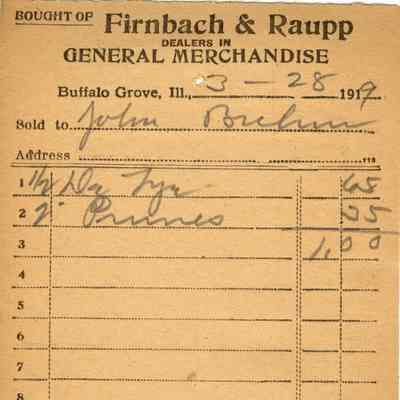 BOUGHT OF Firnbach & Raupp
DEALERS IN
GENERAL MERCHANDISE
Buffalo Grove, Ill., 3 - 28 1919
Sold to John Brehm
Address 118
1 1/2 Dz 65
2 2" Prunes 35
3 1.00
4
5
6
7
8